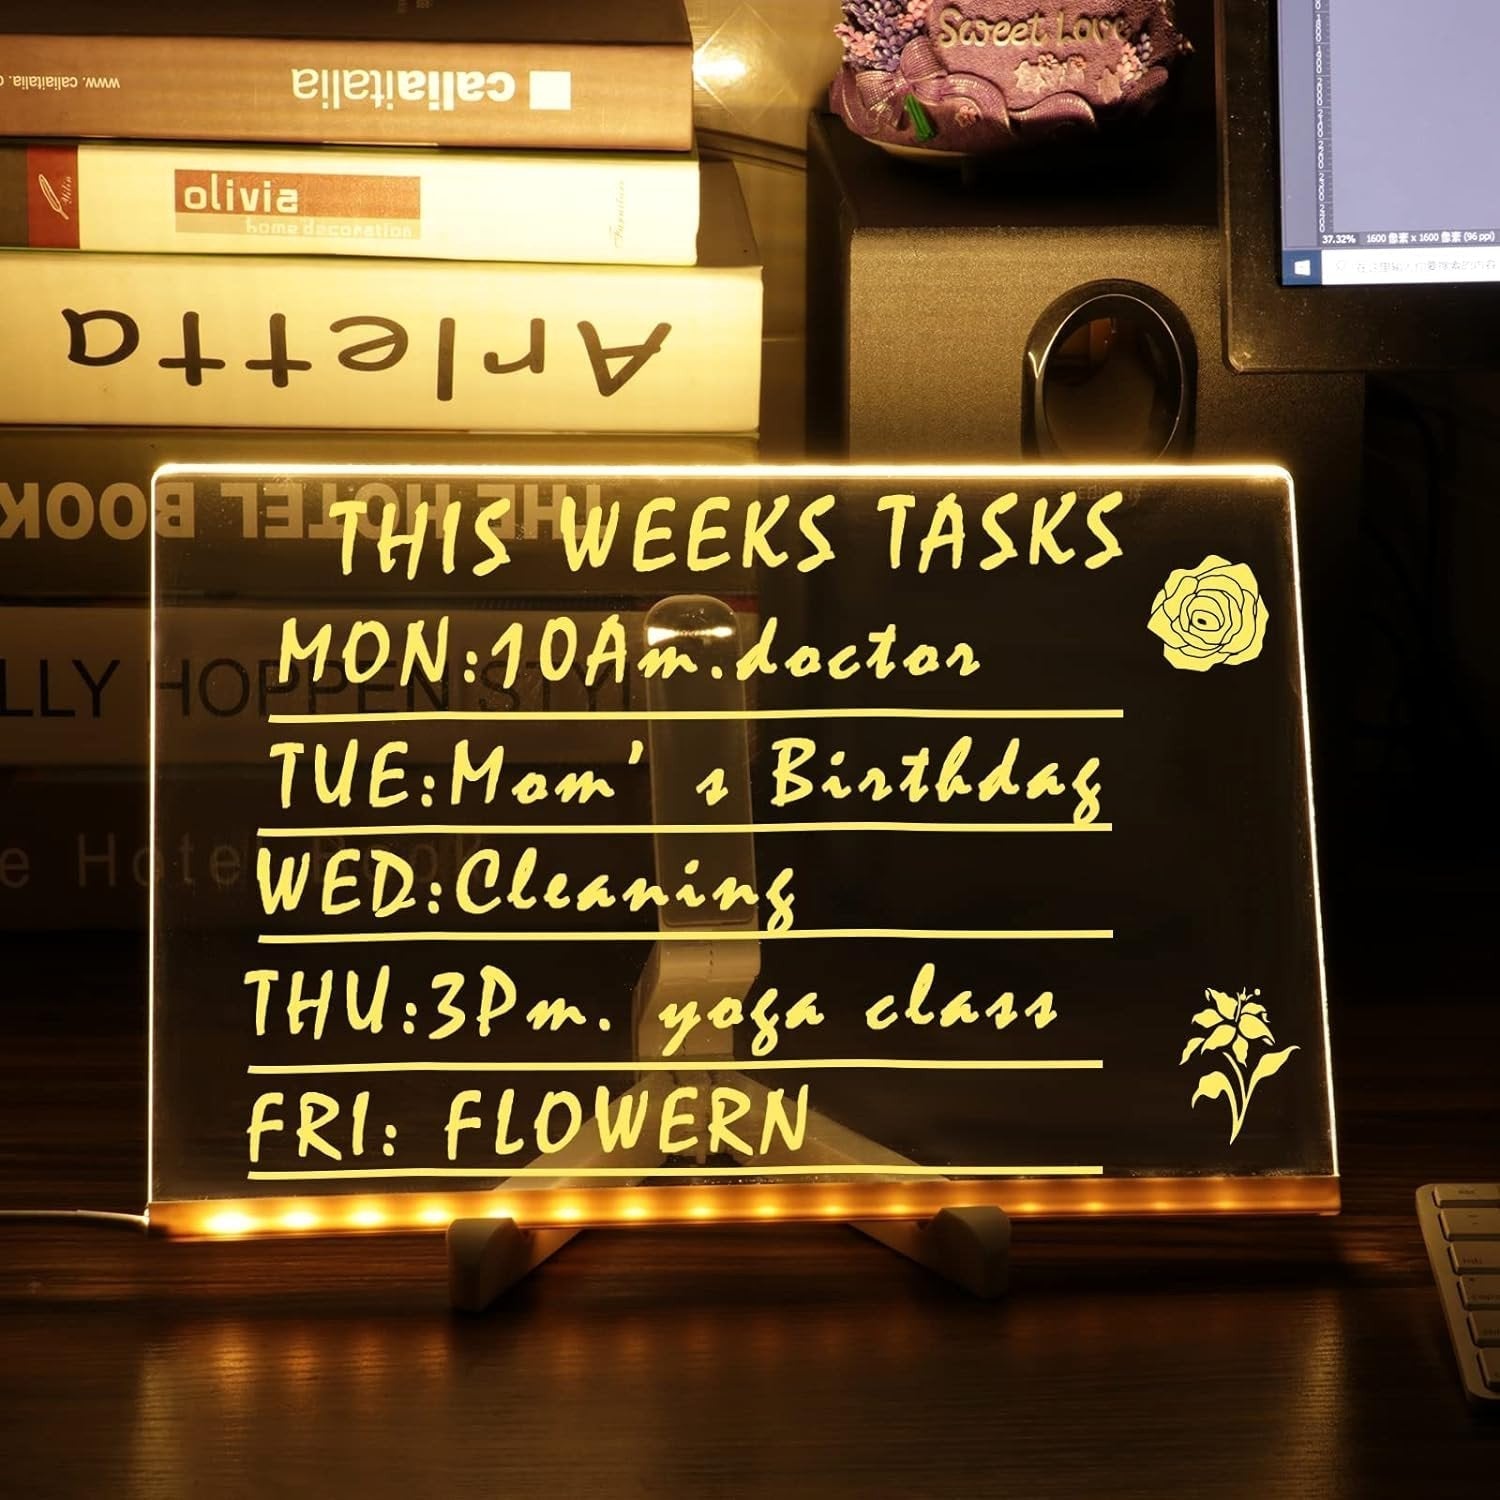 Sweet Love
caliaitalia
www.caliaitalia.c
olivia
home decoration
Arletta
THE HOTEL BOOK
LLY HOPPEN STYL
e Hotel Book
37.32% 1600 像素 x 1600 像素 (96 ppi)
THIS WEEKS TASKS
MON:10Am.doctor
TUE:Mom's Birthday
WED:Cleaning
THU:3Pm. yoga class
FRI: FLOWERN